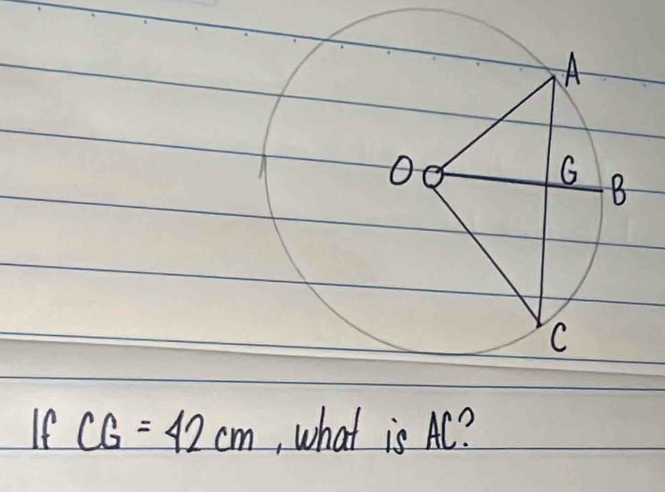 A
O G B
C
If CG = 42 cm , what is AC?